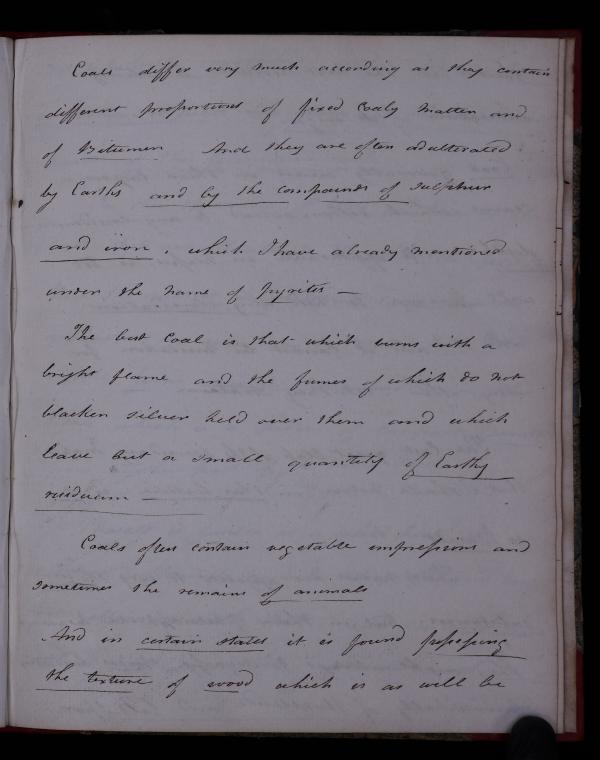 Coals differ very much according as they contain
different proportions of fixed Coaly matter and
of Bitumen And they are often adulterated
by Earths and by the compounds of sulphur
and iron, which I have already mentioned
under the name of Pyrites —
The best Coal is that which burns with a
bright flame and the fumes of which do not
blacken silver held over them and which
leave but a small quantity of Earthy
residuum —
Coals often contain vegetable impressions and
sometimes the remains of animals
And in certain states it is found possessing
the texture of wood which is as will be